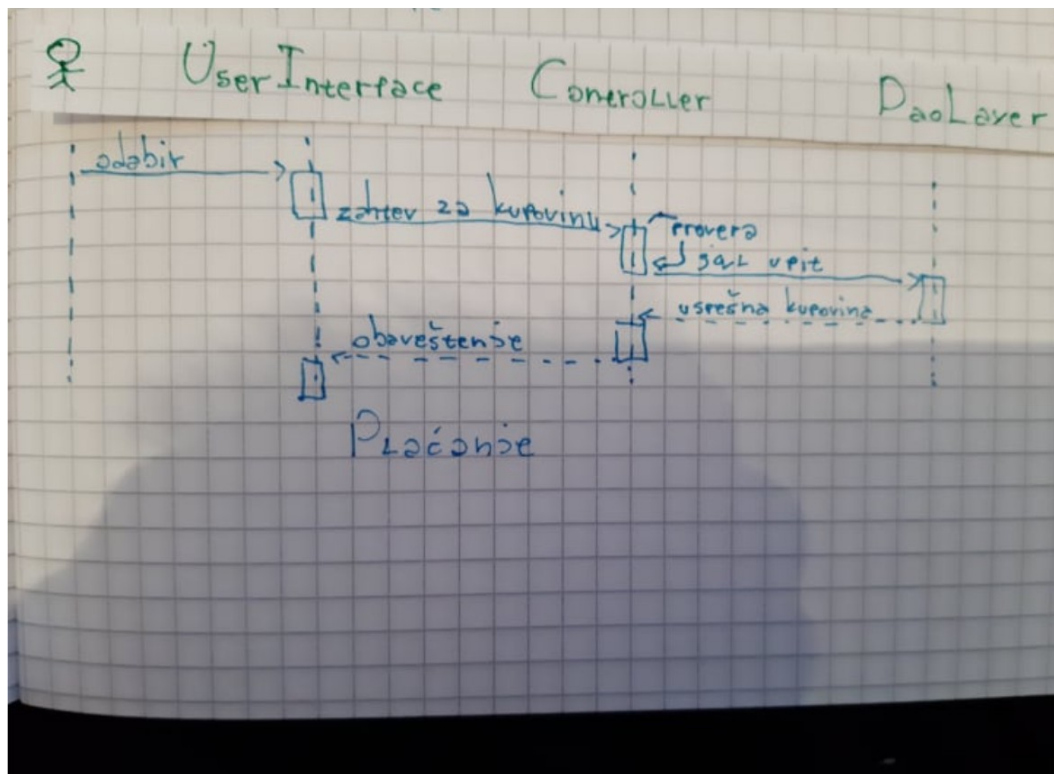 UserInterface Controller DaoLayer
odabir
zahtev za kupovinu
Provera
sql upit
uspešna kupovina
obaveštenje
Plaćanje